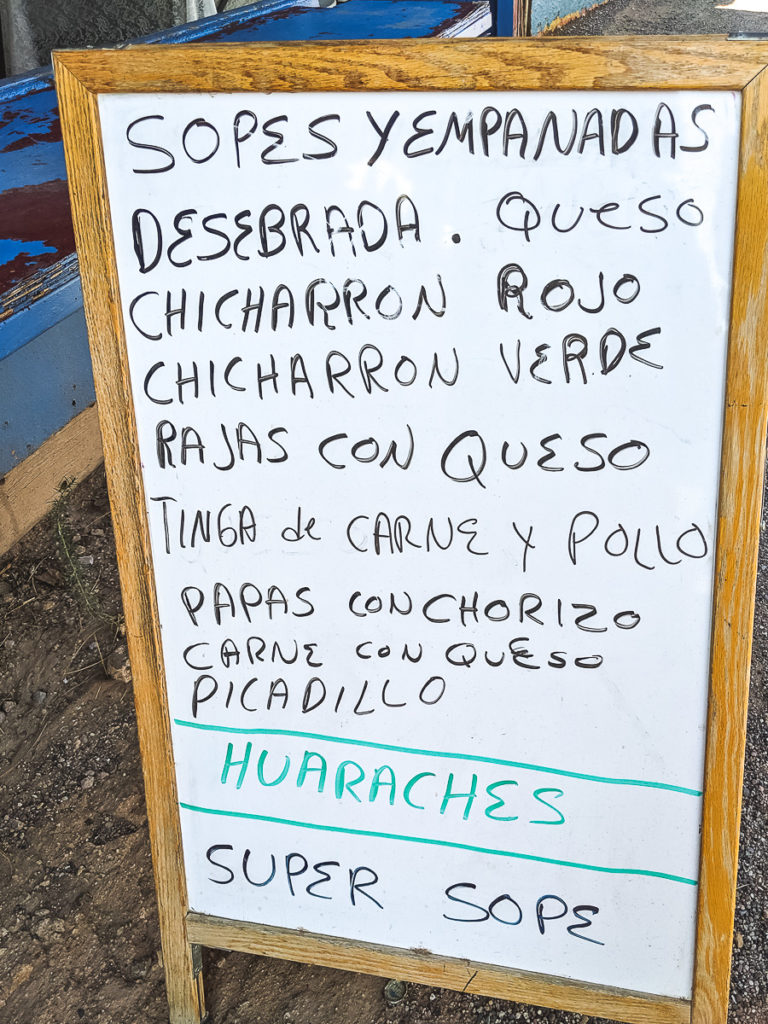 SOPES Y EMPANADAS
DESEBRADA. QUESO
CHICHARRON ROJO
CHICHARRON VERDE
RAJAS CON QUESO
TINGA de CARNE Y POLLO
PAPAS CON CHORIZO
CARNE CON QUESO
PICADILLO
HUARACHES
SUPER SOPE